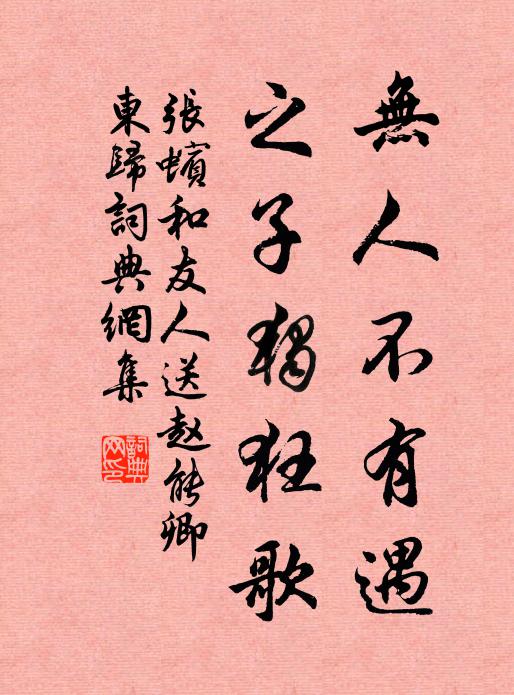 無人不有遇
之子獨狂歌
張蠙和友人送赵能卿
東歸詞典網集
詞典网印